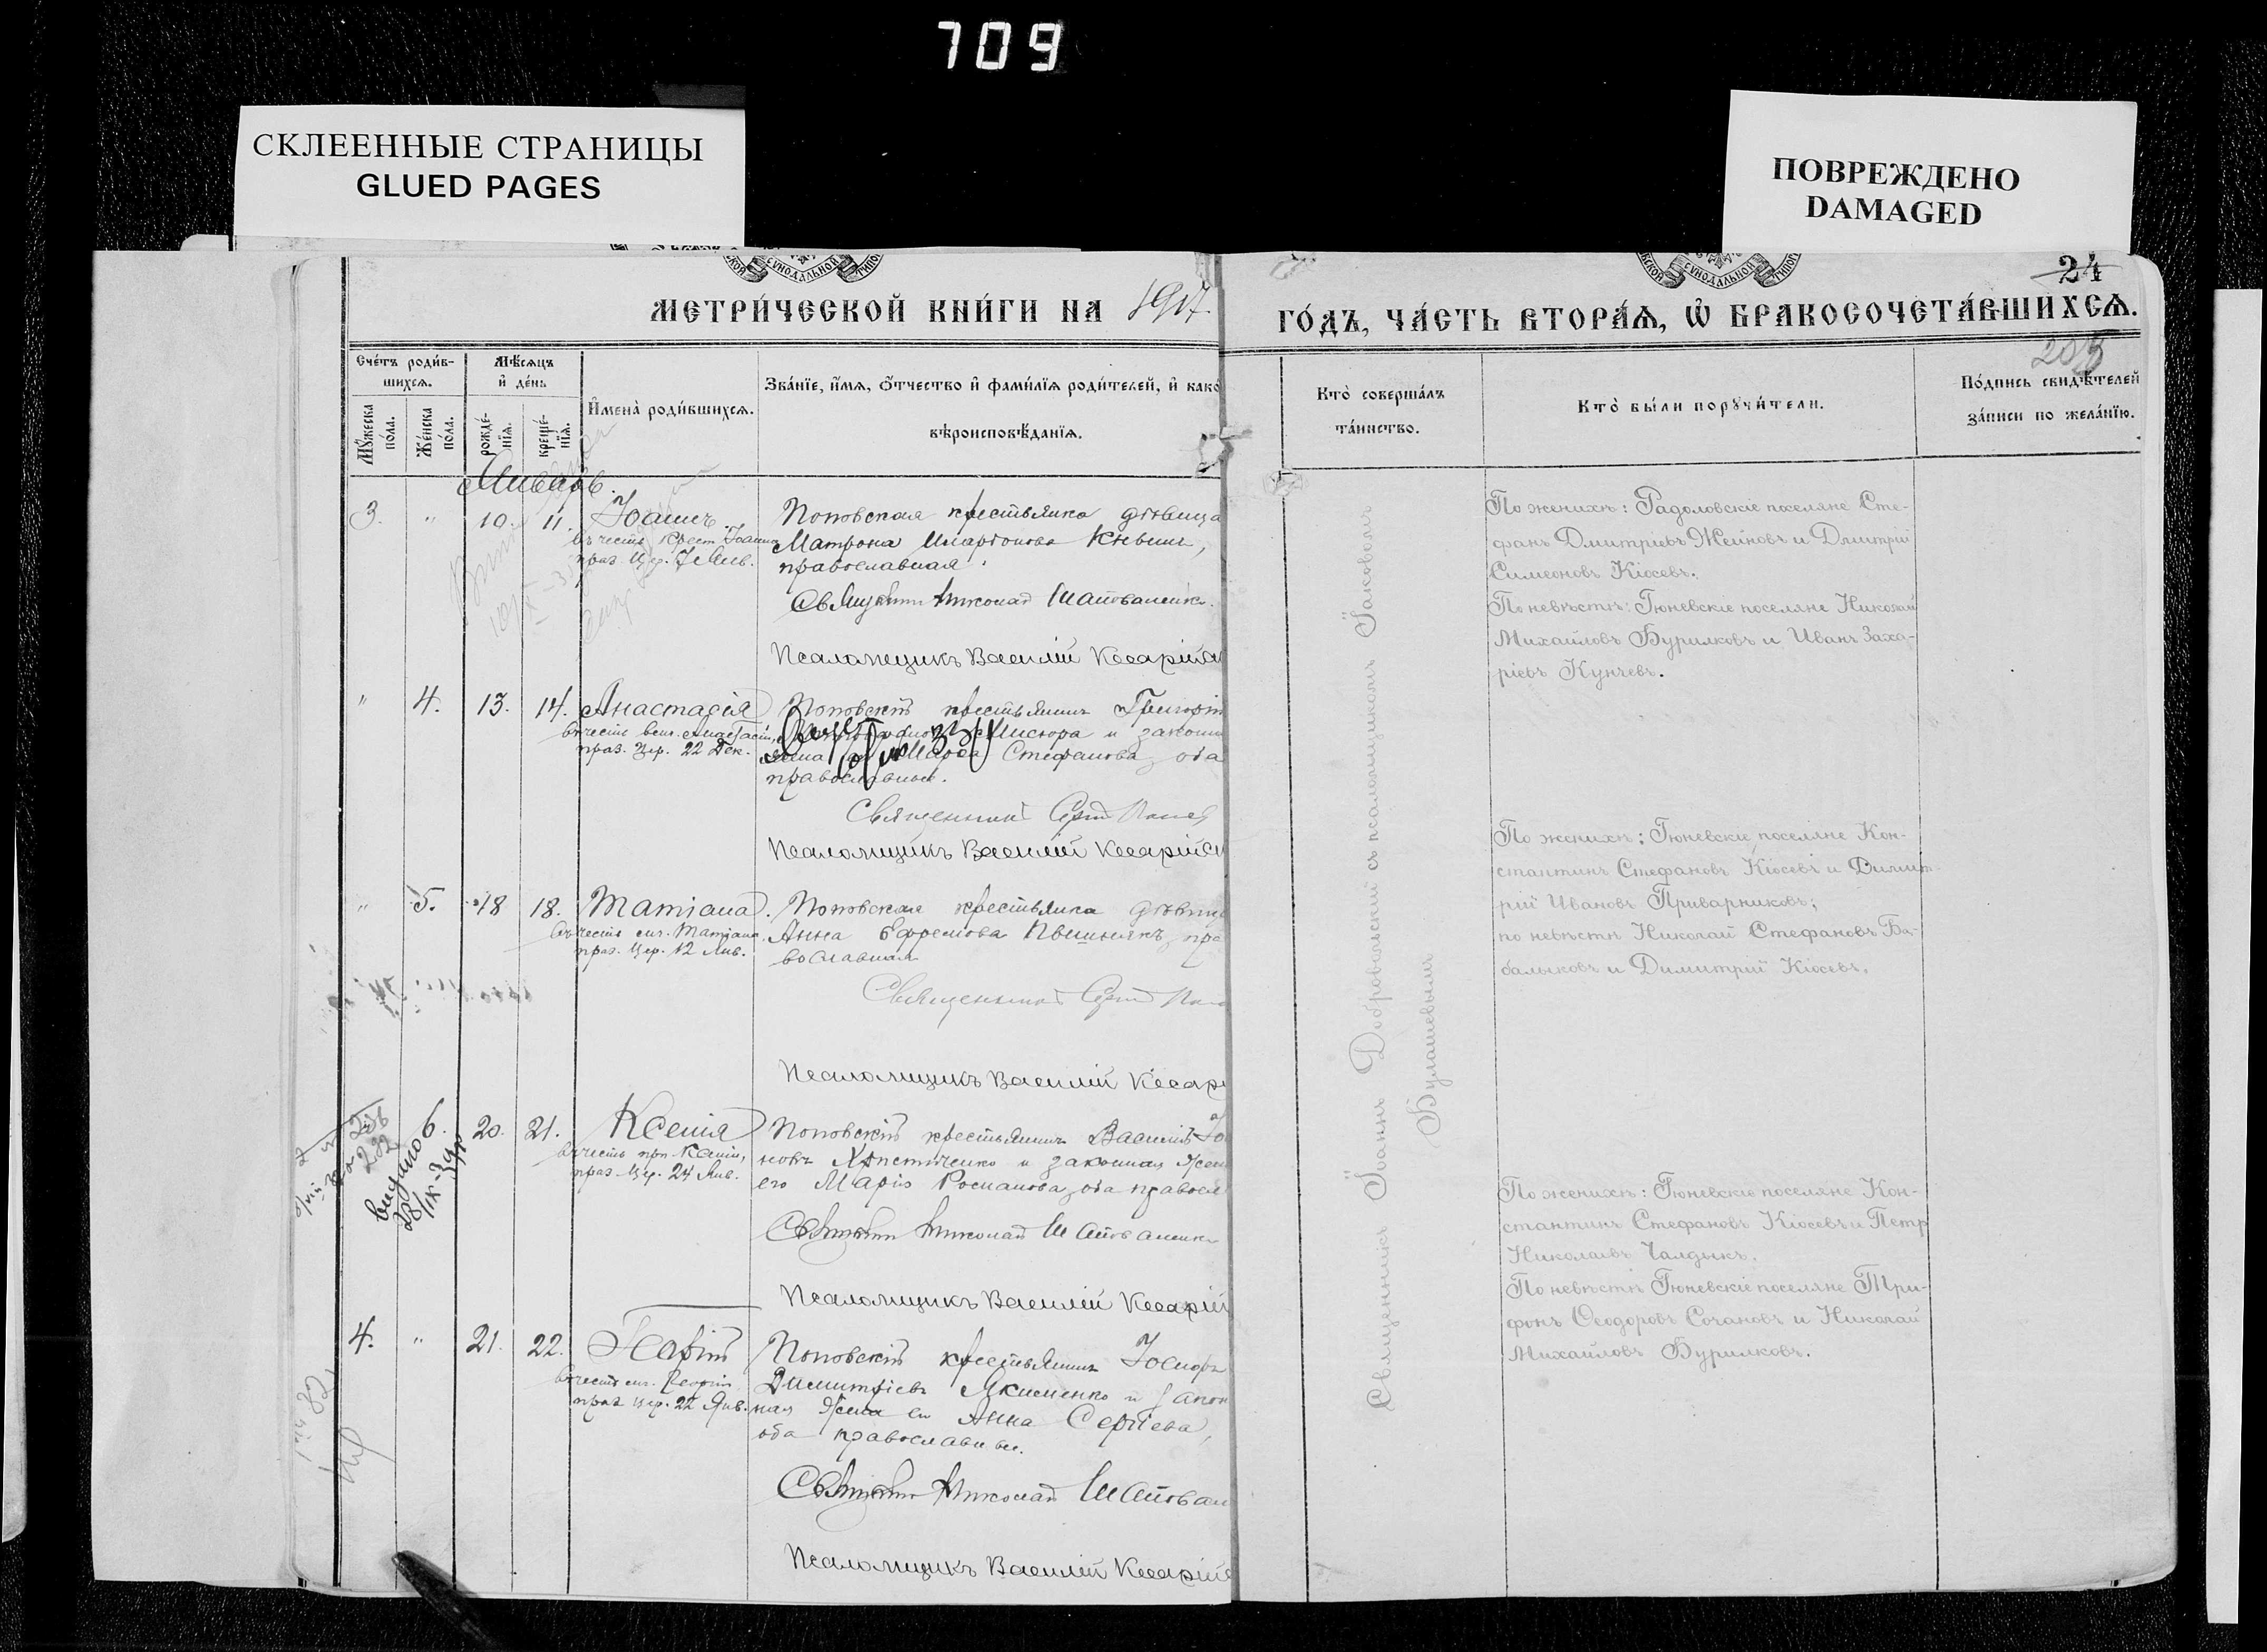 709
СКЛЕЕННЫЕ СТРАНИЦЫ
GLUED PAGES
ПОВРЕЖДЕНО
DAMAGED
СѴНОДАЛЬНОЙ
МЕТРИ́ЧЕСКОЙ КНИ́ГИ НА 1917.
Сче́тъ роди́в-
шихсѧ.
Мѣ́сѧцъ
и҆ де́нь
Мꙋ́жеска
пола.
Же́нска
по́ла.
рожде́-
нїѧ.
креще́-
нїѧ.
И҆мена̀ роди́вшихсѧ.
Зва́нїе, и҆́мѧ, ѻ҆́тчество и҆ фами́лїѧ роди́телей, и҆ како
вѣроисповѣ́данїѧ.
Январь.
3. " 10. 11. Іоаннъ.
въ честь Крест. Іоанна
праз. Цер. 7 Янв.
Поповская крестьянка дѣвица
Матрона
православная.
Священникъ Николай Шаповаленко.
Псаломщикъ Василій Кесарійск
" 4. 13. 14. Анастасія
въ честь вел. Анастасіи,
праз. Цер. 22 Дек.
Поповскій крестьянинъ Григорій
и законн
жена Стефанова, оба
православные.
Священникъ
Псаломщикъ Василій Кесарійск
" 5. 18 18. Татіана.
въ честь муч. Татіаны.
праз. Цер. 12 Янв.
Поповская крестьянка дѣвица
Анна Ефремова пра
вославная
Священникъ
Псаломщикъ Василій Кесарі
6. 20. 21. Ксенія
въ честь прп. Ксеніи,
праз. Цер. 24 Янв.
Поповскій крестьянинъ Василій Іо
новъ Христиченко и законная жена
его Марія Романова, оба правосл
видано
28/IX-39р
Священникъ Николай Шаповаленко
Псаломщикъ Василій Кесарій
4. " 21. 22. Георгій
въ честь муч. Георгія
праз. цер. 22 Янв.
Поповскій крестьянинъ Іосифъ
Димитріевъ Якименко и закон
ная жена его Анна Сергіева,
оба православные.
Священникъ Николай Шаповал
Псаломщикъ Василій Кесарійс
СѴНОДАЛЬНОЙ
24
ГО́ДЪ, ЧА́СТЬ ВТОРА́Ѧ, Ѽ БРАКОСОЧЕТА́ВШИХСѦ.
Кто̀ соверша́лъ
та́инство.
Кто̀ бы́ли порꙋчи́тели.
По́дпись свидѣ́телей
за́писи по жела́нїю.
Священникъ Іоаннъ Добровольскій съ псаломщикомъ Іаковомъ
Булашевымъ
По женихѣ: Радоловскіе поселяне Сте-
фанъ Дмитріевъ Жейновъ и Дмитрій
Симеоновъ Кіосевъ.
По невѣстѣ: Гюневскіе поселяне Николай
Михайловъ Бурилковъ и Иванъ Заха-
ріевъ Кунчевъ.
По женихѣ: Гюневскіе поселяне Кон-
стантинъ Стефановъ Кіосевъ и Димит-
рій Ивановъ Приварниковъ;
по невѣстѣ Николай Стефановъ Ба-
балыковъ и Димитрій Кіосевъ.
По женихѣ: Гюневскіе поселяне Кон-
стантинъ Стефановъ Кіосевъ и Петр
Николаевъ Чалдыкъ.
По невѣстѣ Гюневскіе поселяне Три-
фонъ Ѳеодоровъ Сочановъ и Николай
Михайловъ Бурилковъ.